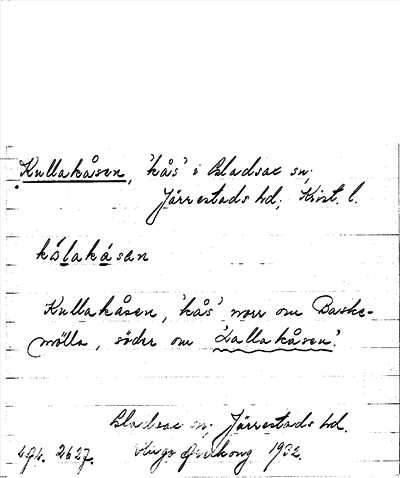 Kullakåsen, 'kås' i Bladsac sn;
Järrestads hd; Krist. l.
kólakásan
Kullakåsen, 'kås' norr om Baske-
mölla, söder om 'Lallakåsen'.
Bladsac sn; Järrestads hd.
2627. 1932.